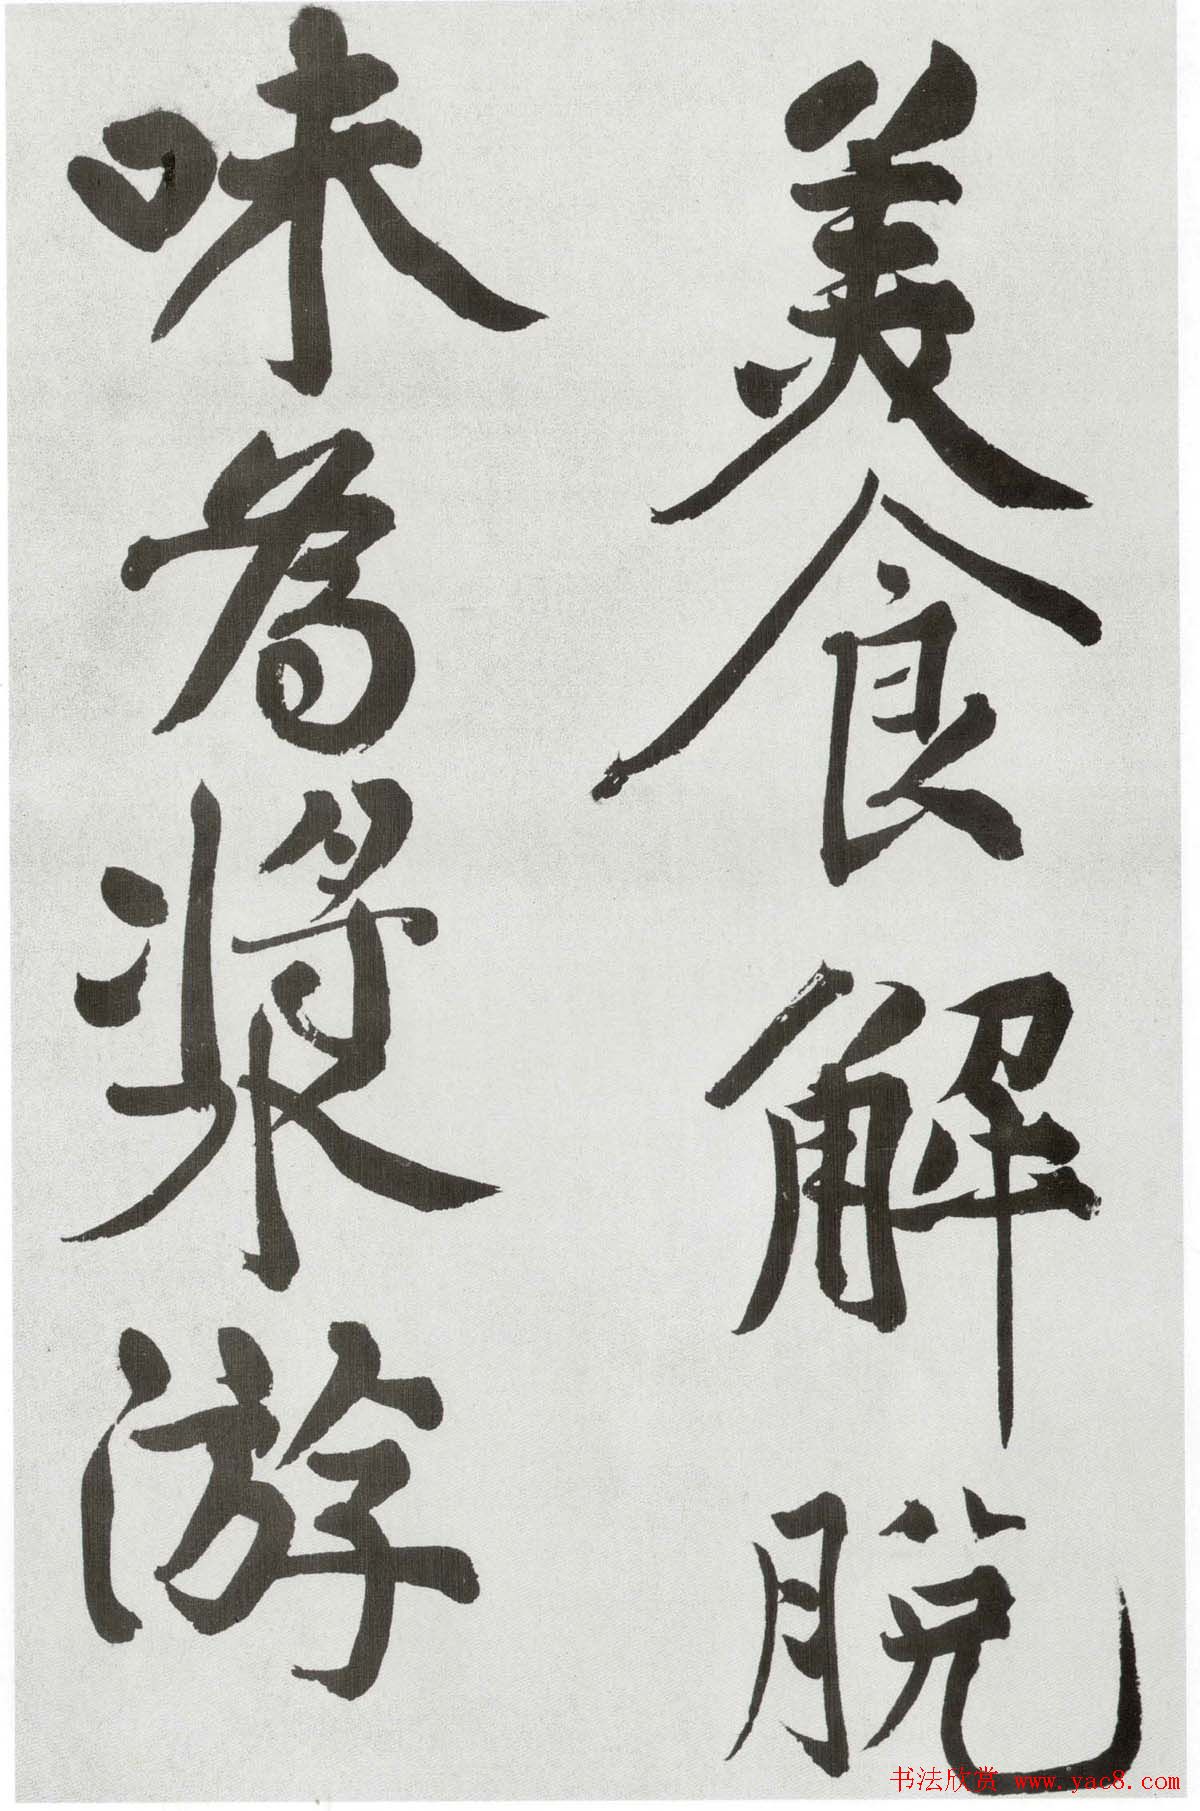 美食解脫
味為漿游
书法欣赏 www.yac8.com